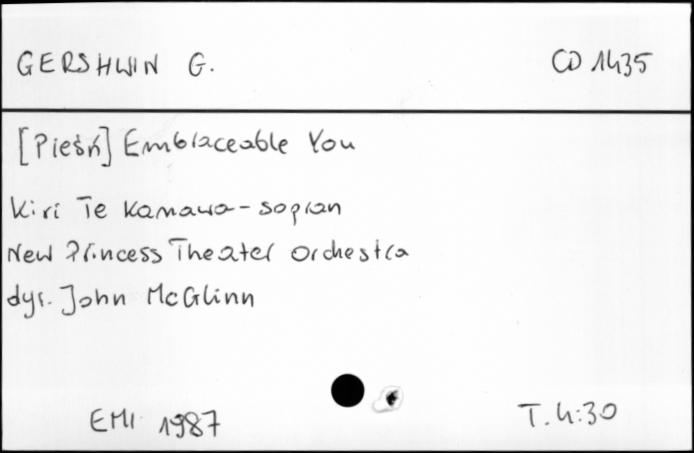 GERSHWIN G. CD 1435
[Pieśń] Embraceable You
Kiri Te Kanawa - sopran
New Princess Theater Orchestra
dyr. John McGlinn
EMI 1987 T. 4:30